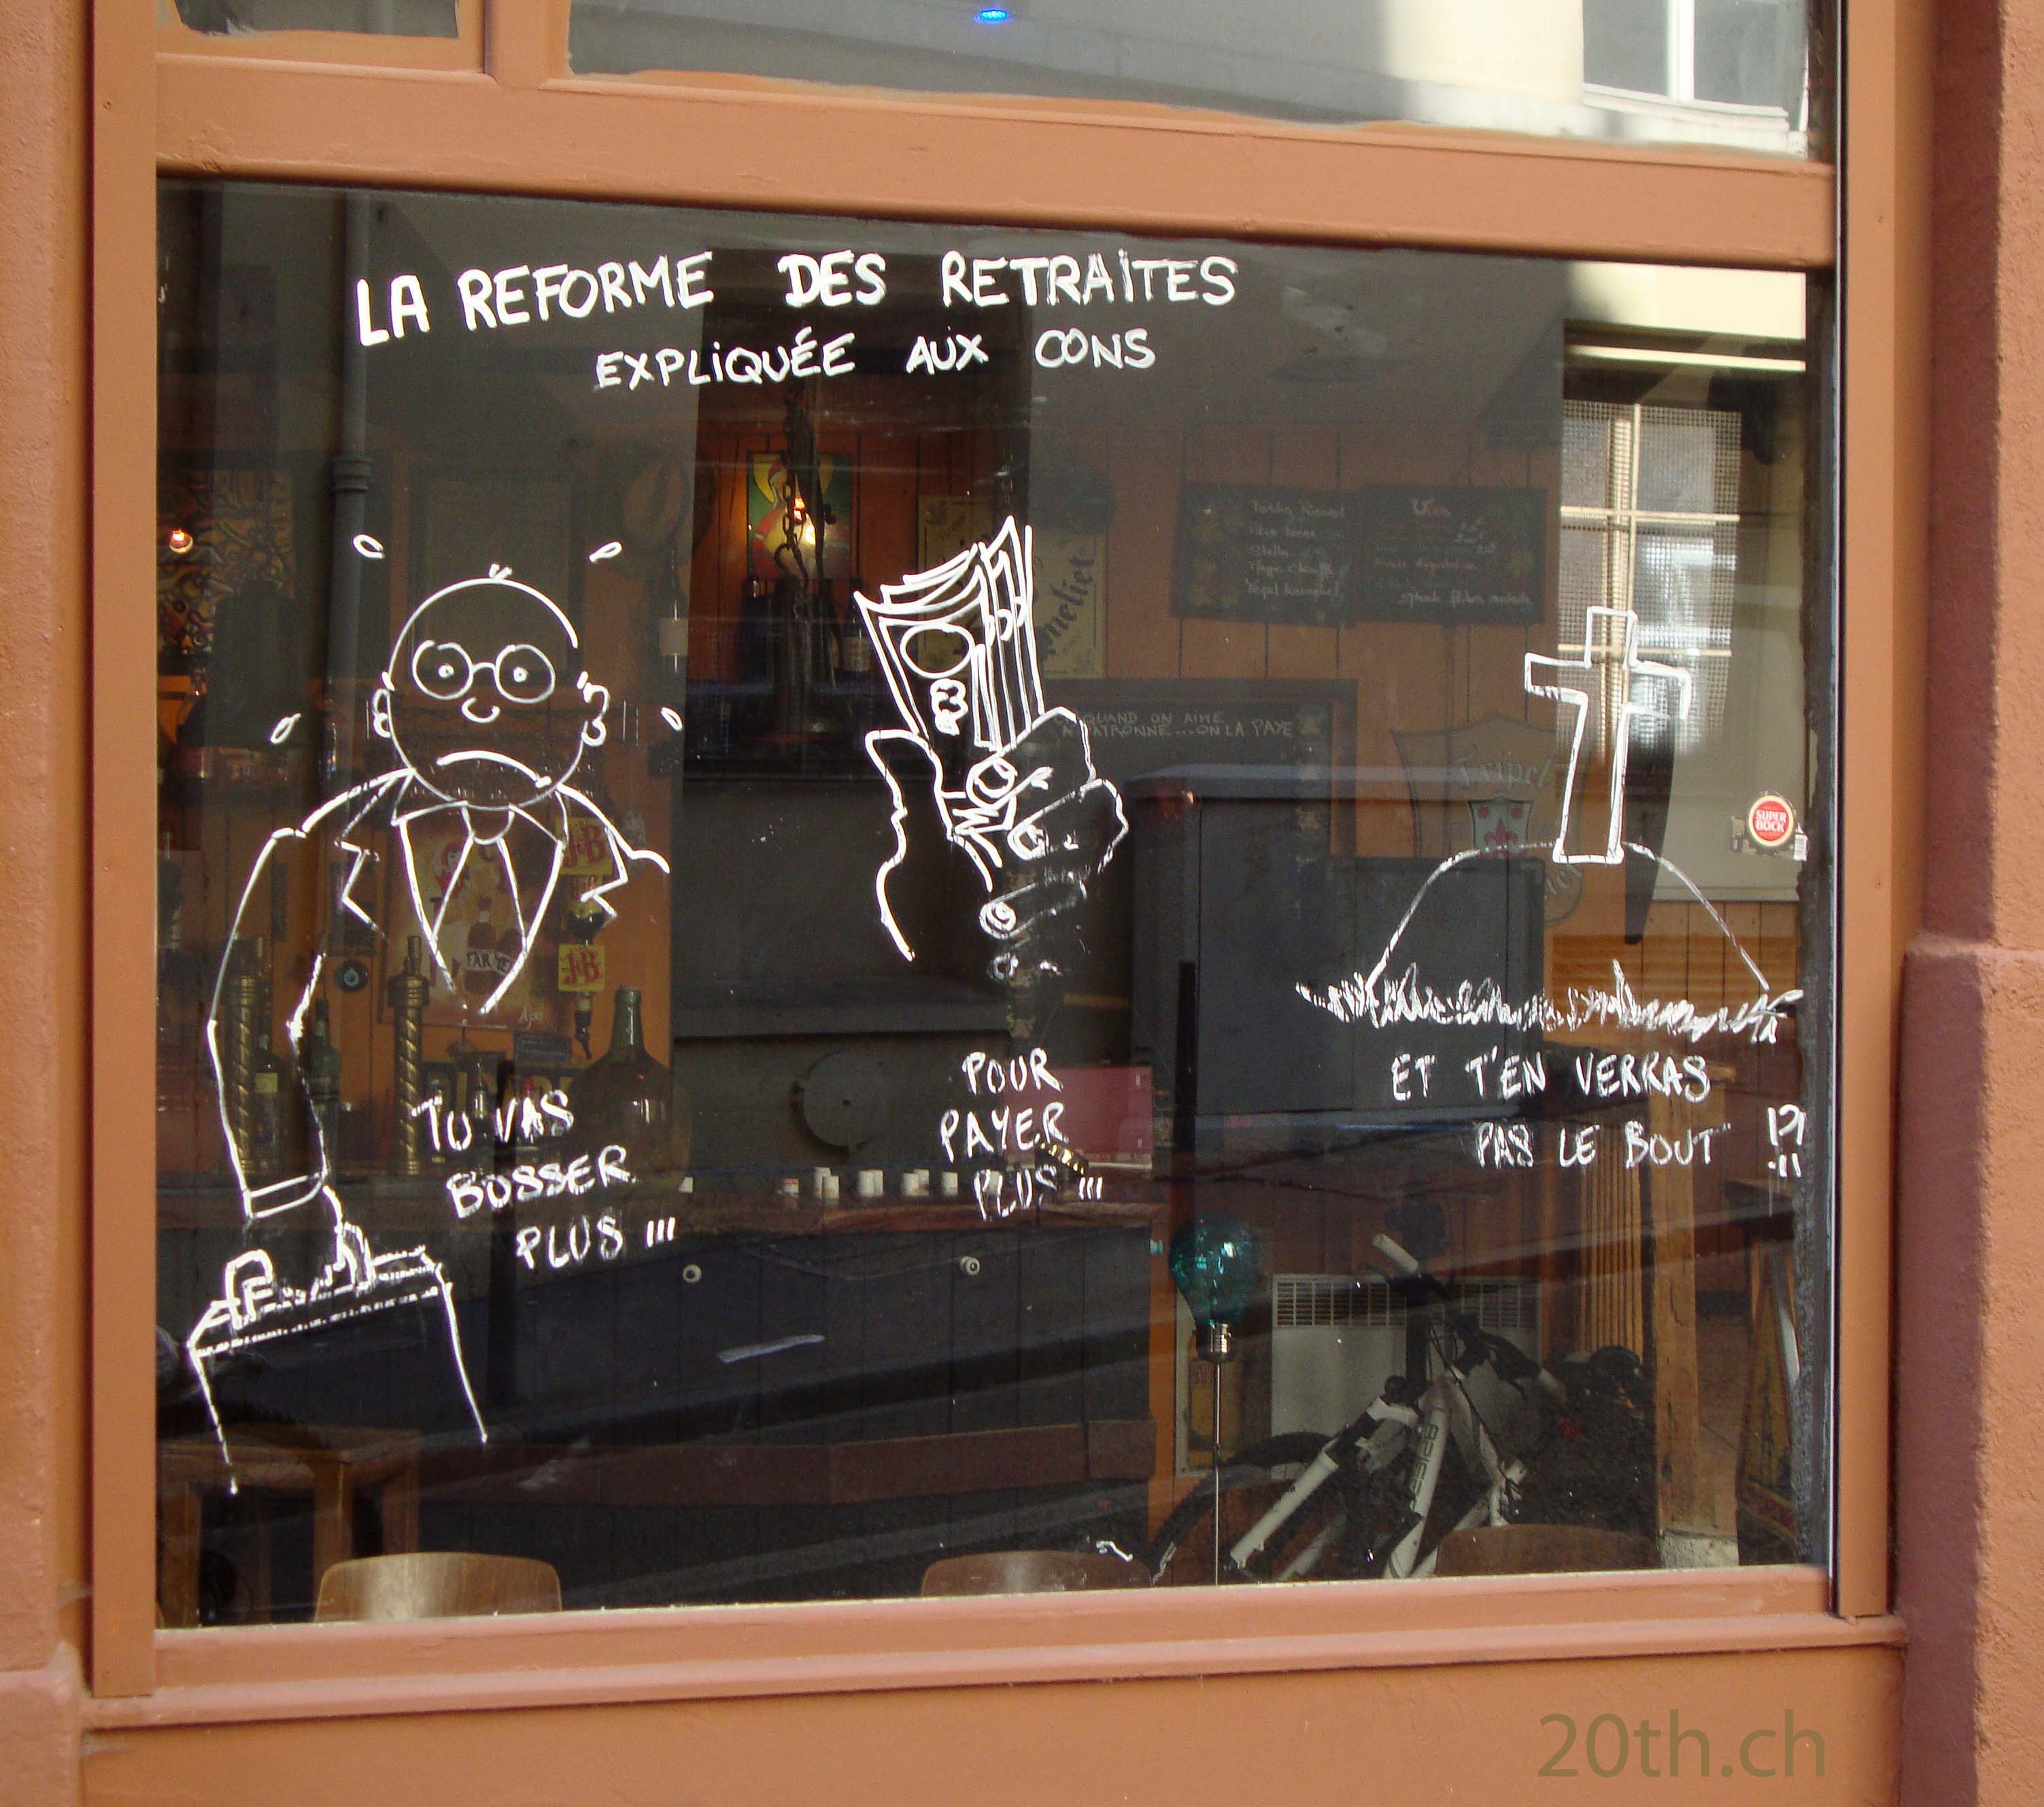 LA REFORME DES RETRAITES
EXPLIQUÉE AUX CONS
QUAND ON AIME
PATRONNE...ON LA PAYE
Tripel
SUPER
BOCK
J&B
J&B
TU VAS
BOSSER
PLUS !!!
POUR
PAYER
PLUS !!!
ET T'EN VERRAS
PAS LE BOUT !?!
20th.ch